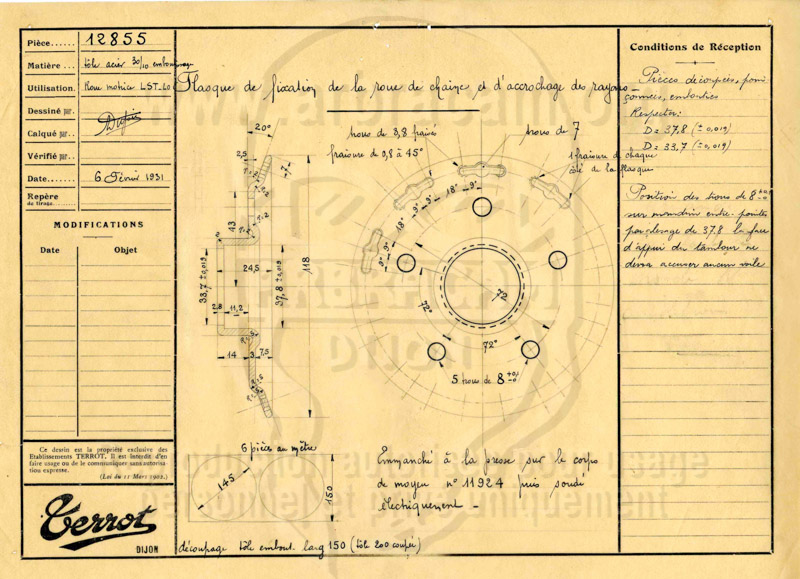 Pièce...... 12855
Matière... tôle acier 30/10 emboutissage
Utilisation. Roue motrice LST-LO
Dessiné par..
Calqué par..
Vérifié par..
Date....... 6 Février 1931
Repère
de tirage.
MODIFICATIONS
Date Objet
Ce dessin est la propriété exclusive des
Etablissements TERROT. Il est interdit d'en
faire usage ou de le communiquer sans autorisa-
tion expresse.
(Loi du 11 Mars 1902.)
Terrot
DIJON
Flasque de fixation de la roue de chaîne et d'accrochage des rayons
20°
2,5
43
118
24,5
33,7 ± 0,019
37,8 ± 0,019
2,8
11,2
14
3
7,5
trous de 3,8 fraisés
fraisure de 0,8 à 45°
trous de 7
1 fraisure d chaque
côté de la flasque
9°
18°
9°
9°
9°
18°
9°
9°
72
72°
72°
5 trous de 8 +0,1 -0
6 pièces au mètre
145
150
Emmanché à la presse sur le corps
de moyeu n° 11924 puis soudé
électriquement -
découpage tôle embout. larg 150 (tôle 200 coupée)
Conditions de Réception
Pièces découpées, poin
çonnées, embouties
Respecter:
D = 37,8 (± 0,019)
D = 33,7 (± 0,019)
Position des trous de 8 +0,1 -0
sur mandrin entre pointes
par alésage de 37.8 la face
d'appui du tambour ne
devra accuser aucun voile